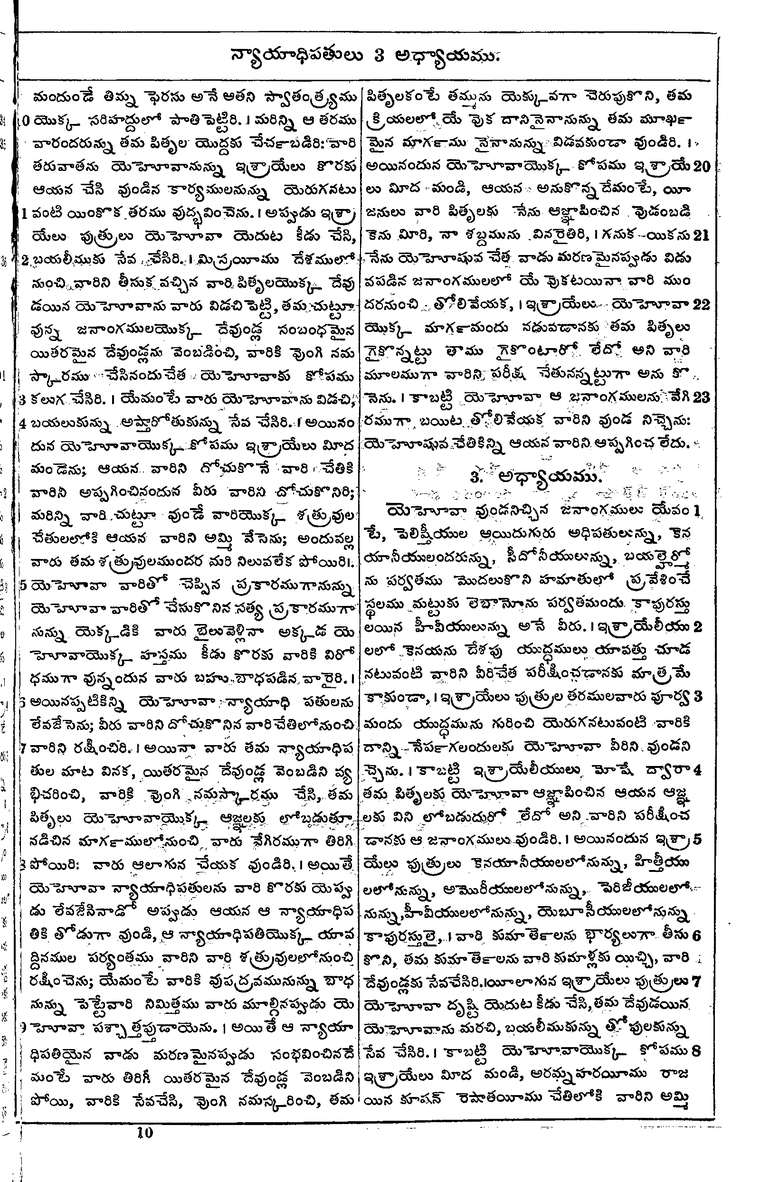 న్యాయాధిపతులు 3 అధ్యాయము.
మందుండే తిమ్న ఘెరసు అనే అతని స్వాతంత్ర్యము
10 యొక్క సరిహద్దులో పాతిపెట్టిరి. । మరిన్ని ఆ తరము
వారందరున్ను తమ పితృల యొద్దకు చేర్చబడిరి: వారి
తరువాతను యెహోవానున్ను ఇశ్రాయేలు కొరకు
ఆయన చేసి వుండిన కార్యములనున్ను యెరుగనటు
1 వంటి యింకొక తరము వుద్భవించెను. । అప్పుడు ఇశ్రా
యేలు పుత్రులు యెహోవా యెదుట కీడు చేసి,
2 బయలీముకు సేవ చేసిరి. । మిస్రయీము దేశములో
నుంచి వారిని తీసుక వచ్చిన వారి పితృలయొక్క దేవు
డయిన యెహోవాను వారు విడచి పెట్టి, తమ చుట్టూ
వున్న జనాంగములయొక్క దేవుండ్ల సంబంధమైన
యితరమైన దేవుండ్లను వెంబడించి, వారికి వుంగి నమ
స్కారము చేసినందుచేత యెహోవాకు కోపము
3 కలుగ చేసిరి. । యేమంటే వారు యెహోవాను విడచి;
4 బయలుకున్ను అష్తారోతుకున్ను సేవ చేసిరి. । అయినం
దున యెహోవాయొక్క కోపము ఇశ్రాయేలు మీద
మండెను; ఆయన వారిని దోచుకొనే వారి చేతికి
వారిని అప్పగించినందున వీరు వారిని దోచుకొనిరి;
మరిన్ని వారి చుట్టూ వుండే వారియొక్క శత్రువుల
చేతులలోకి ఆయన వారిని అమ్మి వేసెను; అందువల్ల
వారు తమ శత్రువులముందర మరి నిలువలేక పోయిరి।.
5 యెహోవా వారితో చెప్పిన ప్రకారముగానున్ను
యెహోవా వారితో చేసుకొనిన సత్య ప్రకారముగా
నున్ను యెక్కడికి వారు బైలువెళ్లినా అక్కడ యె
హోవాయొక్క హస్తము కీడు కొరకు వారికి విరో
ధముగా వున్నందున వారు బహు బాధపడిన వారైరి. ।
6 అయినప్పటికిన్ని యెహోవా న్యాయాధి పతులను
లేవజేసెను; వీరు వారిని దోచుకొనిన వారి చేతిలోనుంచి
7 వారిని రక్షించిరి. । అయినా వారు తమ న్యాయాధిప
తుల మాట వినక, యితరమైన దేవుండ్ల వెంబడిని వ్య
భిచరించి, వారికి వుంగి నమస్కారము చేసి, తమ
పితృలు యెహోవాయొక్క ఆజ్ఞలకు లోబడుతూ
నడిచిన మార్గములోనుంచి వారు వేగిరముగా తిరిగి
పోయిరి: వారు ఆలాగున చేయక వుండిరి. । అయితే
యెహోవా న్యాయాధిపతులను వారి కొరకు యెప్పు
డు లేవజేసినాడో అప్పుడు ఆయన ఆ న్యాయాధిప
తికి తోడుగా వుండి, ఆ న్యాయాధిపతియొక్క యావ
ద్దినముల పర్యంతము వారిని వారి శత్రువులలోనుంచి
రక్షించెను; యేమంటే వారికి వుపద్రవమునున్ను బాధ
నున్ను పెట్టేవారి నిమిత్తము వారు మూల్గినప్పుడు యె
9 హోవా పశ్చాత్తప్తుడాయెను. । అయితే ఆ న్యాయా
ధిపతియైన వాడు మరణమైనప్పుడు సంభవించినదే
మంటే వారు తిరిగీ యితరమైన దేవుండ్ల వెంబడిని
పోయి, వారికి సేవచేసి, వుంగి నమస్కరించి, తమ
పితృలకంటే తమ్మును యెక్కువగా చెరుపుకొని, తమ
క్రియలలో యే వుక దానినైనానున్ను తమ మూర్ఖ
మైన మార్గము నైనానున్ను విడవకుండా వుండిరి. ।
అయినందున యెహోవాయొక్క కోపము ఇశ్రాయే 20
లు మీద మండి, ఆయన అనుకొన్నదేమంటే, యీ
జనులు వారి పితృలకు నేను ఆజ్ఞాపించిన వుడంబడి
కెను మీరి, నా శబ్దమును వినరైతిరి, । గనుక యికను 21
నేను యెహోషువ చేత వాడు మరణమైనప్పుడు విడు
వపడిన జనాంగములలో యే వుకటయినా వారి ముం
దరనుంచి తోలివేయక, । ఇశ్రాయేలు యెహోవా 22
యొక్క మార్గమందు నడువడానకు తమ పితృలు
గైకొన్నట్టు తాము గైకొంటారో లేదో అని వారి
మూలముగా వారిని పరీక్ష చేతునన్నట్టుగా అను కొ
నెను. । కాబట్టి యెహోవా ఆ జనాంగములను వేగి 23
రముగా బయిట తోలివేయక వారిని వుండ నిచ్చెను:
యెహోషువ చేతికిన్ని ఆయన వారిని అప్పగించ లేదు.
3. అధ్యాయము.
యెహోవా వుండనిచ్చిన జనాంగములు యేవం 1
టే, పెలిష్తీయుల అయిదుగురు అధిపతులున్ను, కెన
యానీయులందరున్ను, సీదోనీయులున్ను, బయల్హెర్మో
ను పర్వతము మొదలుకొని హమాతులో ప్రవేశించే
స్థలము మట్టుకు లెబానోను పర్వతమందు కాపురస్తు
లయిన హీవీయులున్ను అనే వీరు. । ఇశ్రాయేలీయు 2
లలో కెనయను దేశపు యుద్ధములు యావత్తు చూడ
నటువంటి వారిని వీరిచేత పరీక్షించడానకు మాత్రమే
కాకుండా, । ఇశ్రాయేలు పుత్రుల తరములవారు పూర్వ 3
మందు యుద్ధమును గురించి యెరుగనటువంటి వారికి
దాన్ని నేర్పగలందులకు యెహోవా వీరిని వుండని
చ్చెను. । కాబట్టి ఇశ్రాయేలీయులు మోషే ద్వారా 4
తమ పితృలకు యెహోవా ఆజ్ఞాపించిన ఆయన ఆజ్ఞ
లకు విని లోబడుదురో లేదో అని వారిని పరీక్షించ
డానకు ఆ జనాంగములు వుండిరి. । అయినందున ఇశ్రా 5
యేలు పుత్రులు కెనయానీయులలోనున్ను, హిత్తీయు
లలోనున్ను, అమోరీయులలోనున్ను, పెరిజీయులలో
నున్ను, హీవీయులలోనున్ను, యెబూసీయులలోనున్ను
కాపురస్తులై, । వారి కుమార్తెలను భార్యలుగా తీసు 6
కొని, తమ కుమార్తెలను వారి కుమాళ్లకు యిచ్చి, వారి
దేవుండ్లకు సేవచేసిరి. ।యీలాగున ఇశ్రాయేలు పుత్రులు 7
యెహోవా దృష్టి యెదుట కీడు చేసి, తమ దేవుడయిన
యెహోవాను మరచి, బయలీముకున్ను తోపులకున్ను
సేవ చేసిరి. । కాబట్టి యెహోవాయొక్క కోపము 8
ఇశ్రాయేలు మీద మండి, అరమ్నహరయీము రాజ
యిన కూషన్ రెషాతయీము చేతిలోకి వారిని అమ్మి
10